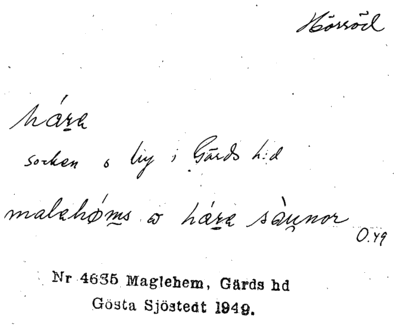 Hörröd
hára
socken o by i Gärds h:d
malahøms o hára sànnor
O.49
Nr 4635 Maglehem, Gärds hd
Gösta Sjöstedt 1949.